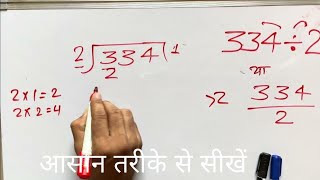 2)334(1
2
2×1=2
2×2=4
334÷2
या
>2 334/2
आसान तरीके से सीखें